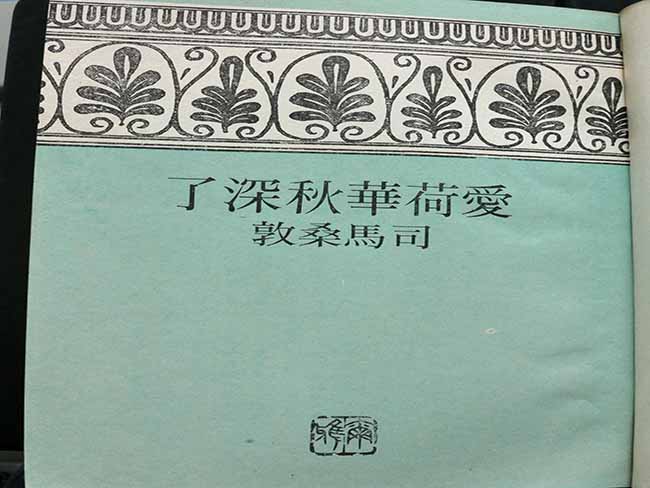 愛荷華秋深了
司馬桑敦
爾雅